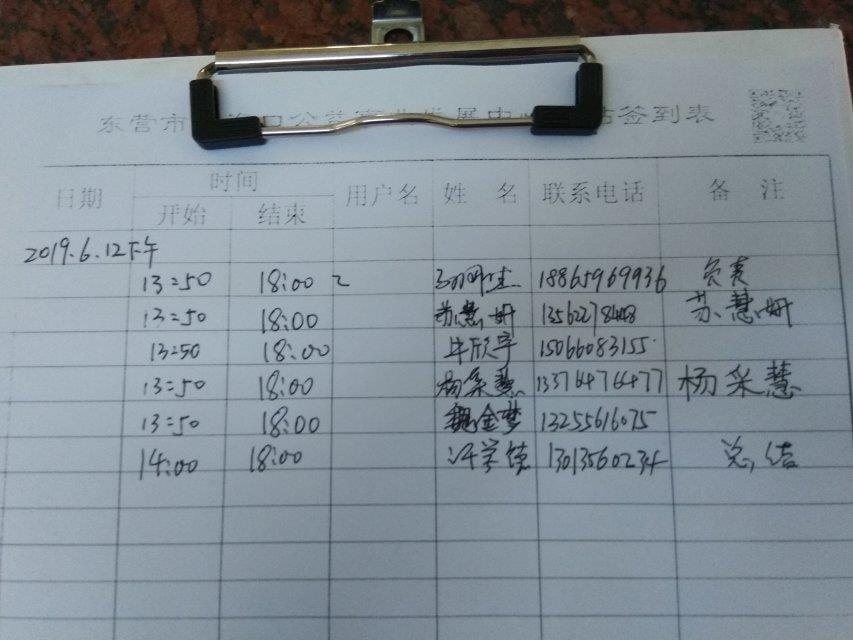 东营市 公益事业发展中 站签到表
日期 时间 用户名 姓 名 联系电话 备 注
开始 结束
2019.6.12下午
13:50 18:00 18865969936 负责
13:50 18:00 苏慧妍 苏慧妍
13:50 18:00 牛欣宇 15066083155
13:50 18:00 杨采慧 13376476477 杨采慧
13:50 18:00 魏金梦 13255616075
14:00 18:00 13013560234 总结